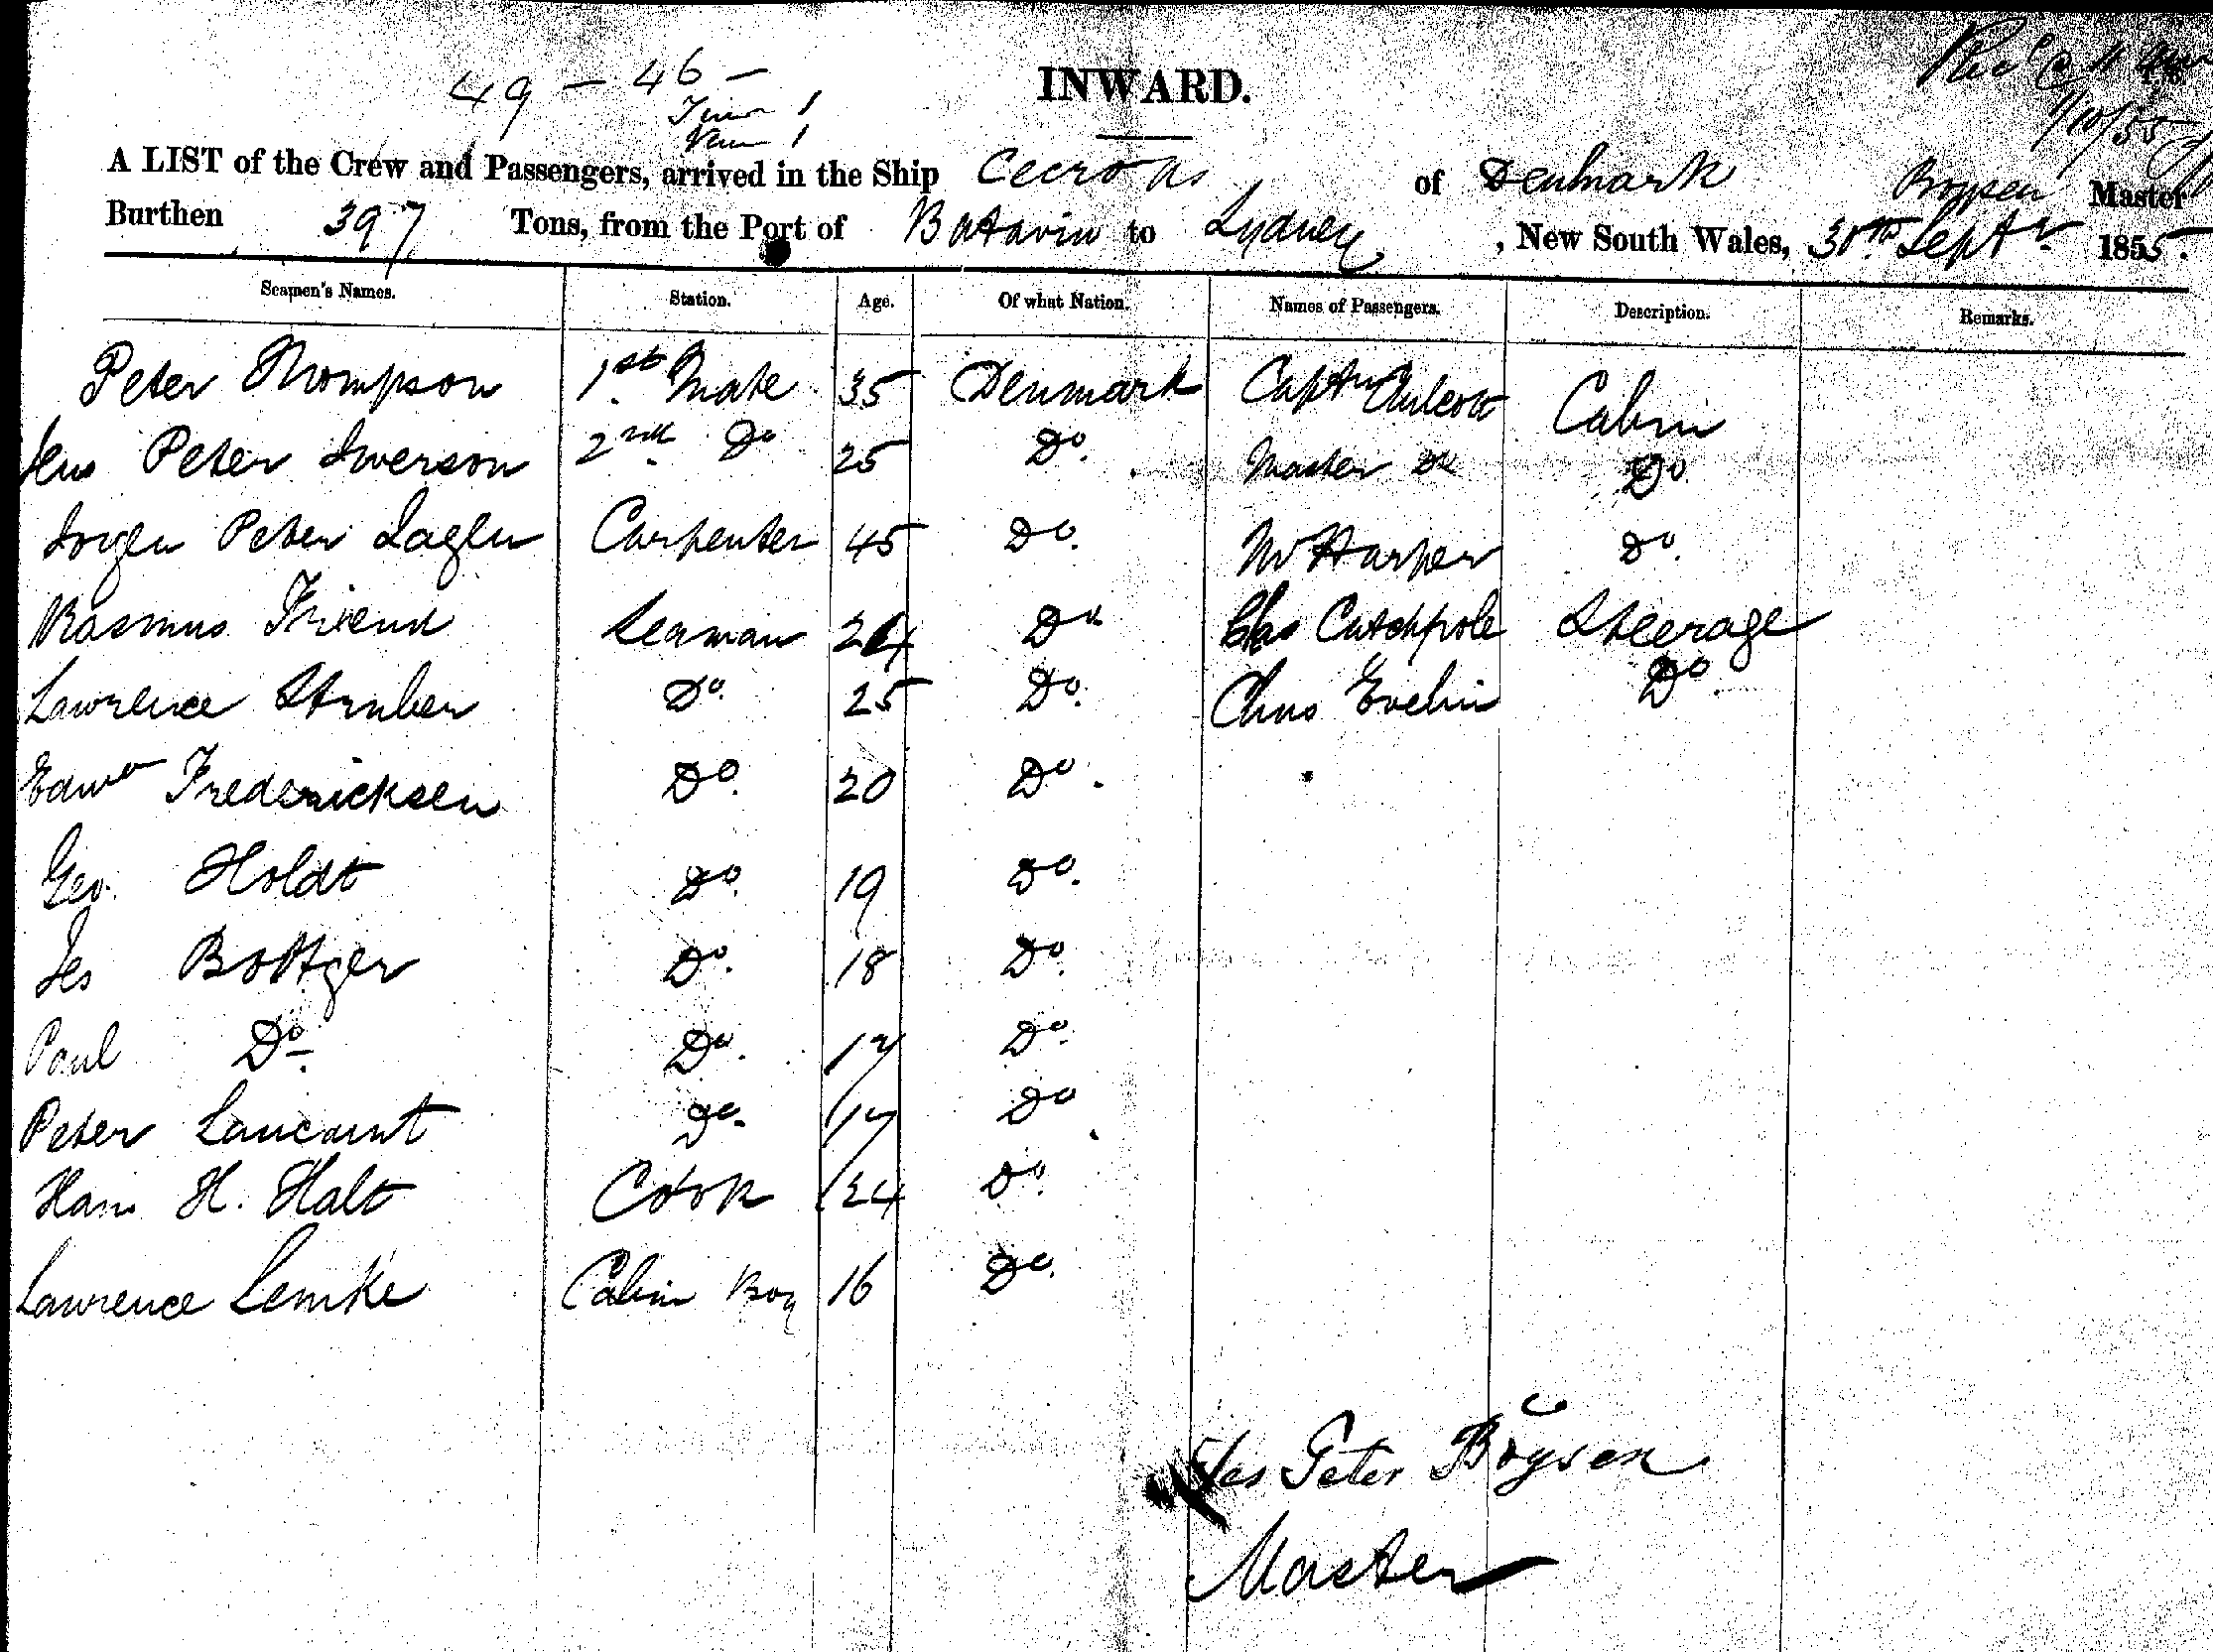 49 - 46 -
INWARD.
1/10/55
A LIST of the Crew and Passengers, arrived in the Ship Cecrops of Denmark Boysen Master
Burthen 397 Tons, from the Port of Batavia to Sydney, New South Wales, 30th Septr 1855.
Seamen's Names. Station. Age. Of what Nation. Names of Passengers. Description. Remarks.
Peter Thompson 1st Mate 35 Denmark Captn Cabin
Jens Peter Iverson 2nd Do 25 Do. Master Do Do
Peter Carpenter 45 Do. Mr Harper Do.
Rasmus Friend Seaman 24 Do Chas Catchpole Steerage
Lawrence Do. 25 Do. Chas Evelin Do
Edwd Fredericksen Do. 20 Do.
Geo. Holdt Do. 19 Do.
Jes Bottger Do. 18 Do.
Poul Do. Do. 17 Do.
Peter Do. 17 Do
Hans H. Halt Cook 24 Do.
Lawrence Lemke Cabin Boy 16 Do.
Jes Peter Boysen
Master